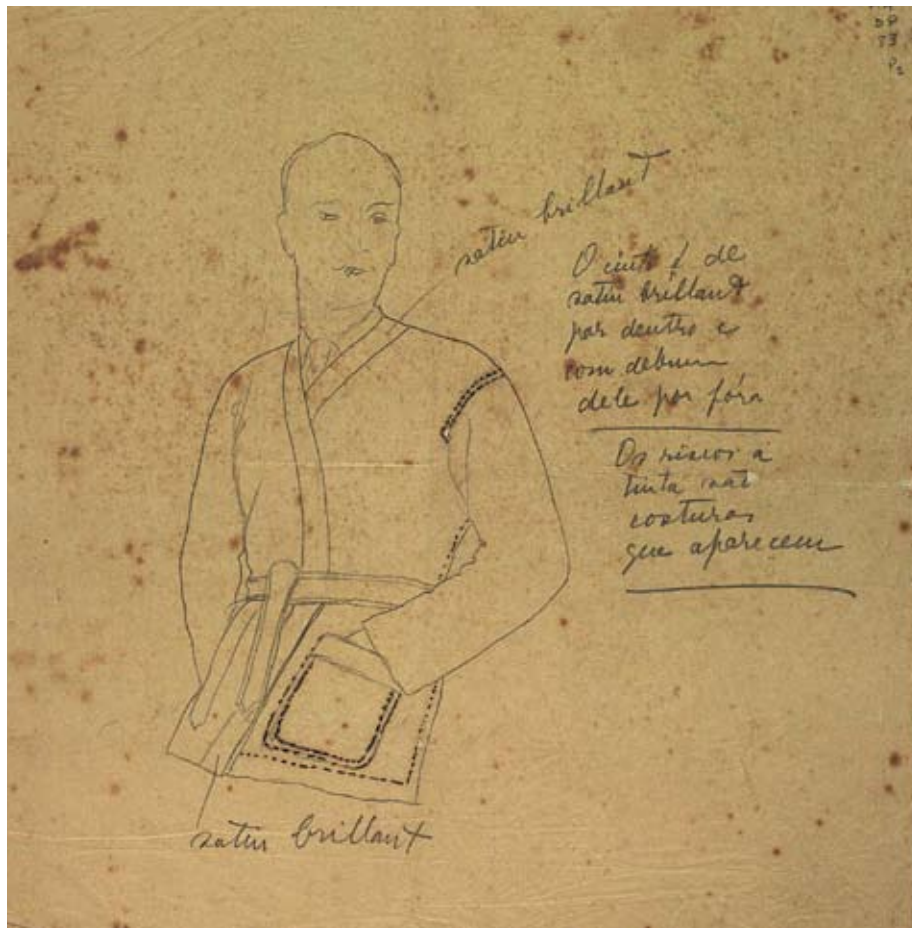 DP
satin brillant
O cinto é de
satin brillant
por dentro e
com debrum
dele por fóra
Os riscos a
tinta são
costuras
que aparecem
satin brillant